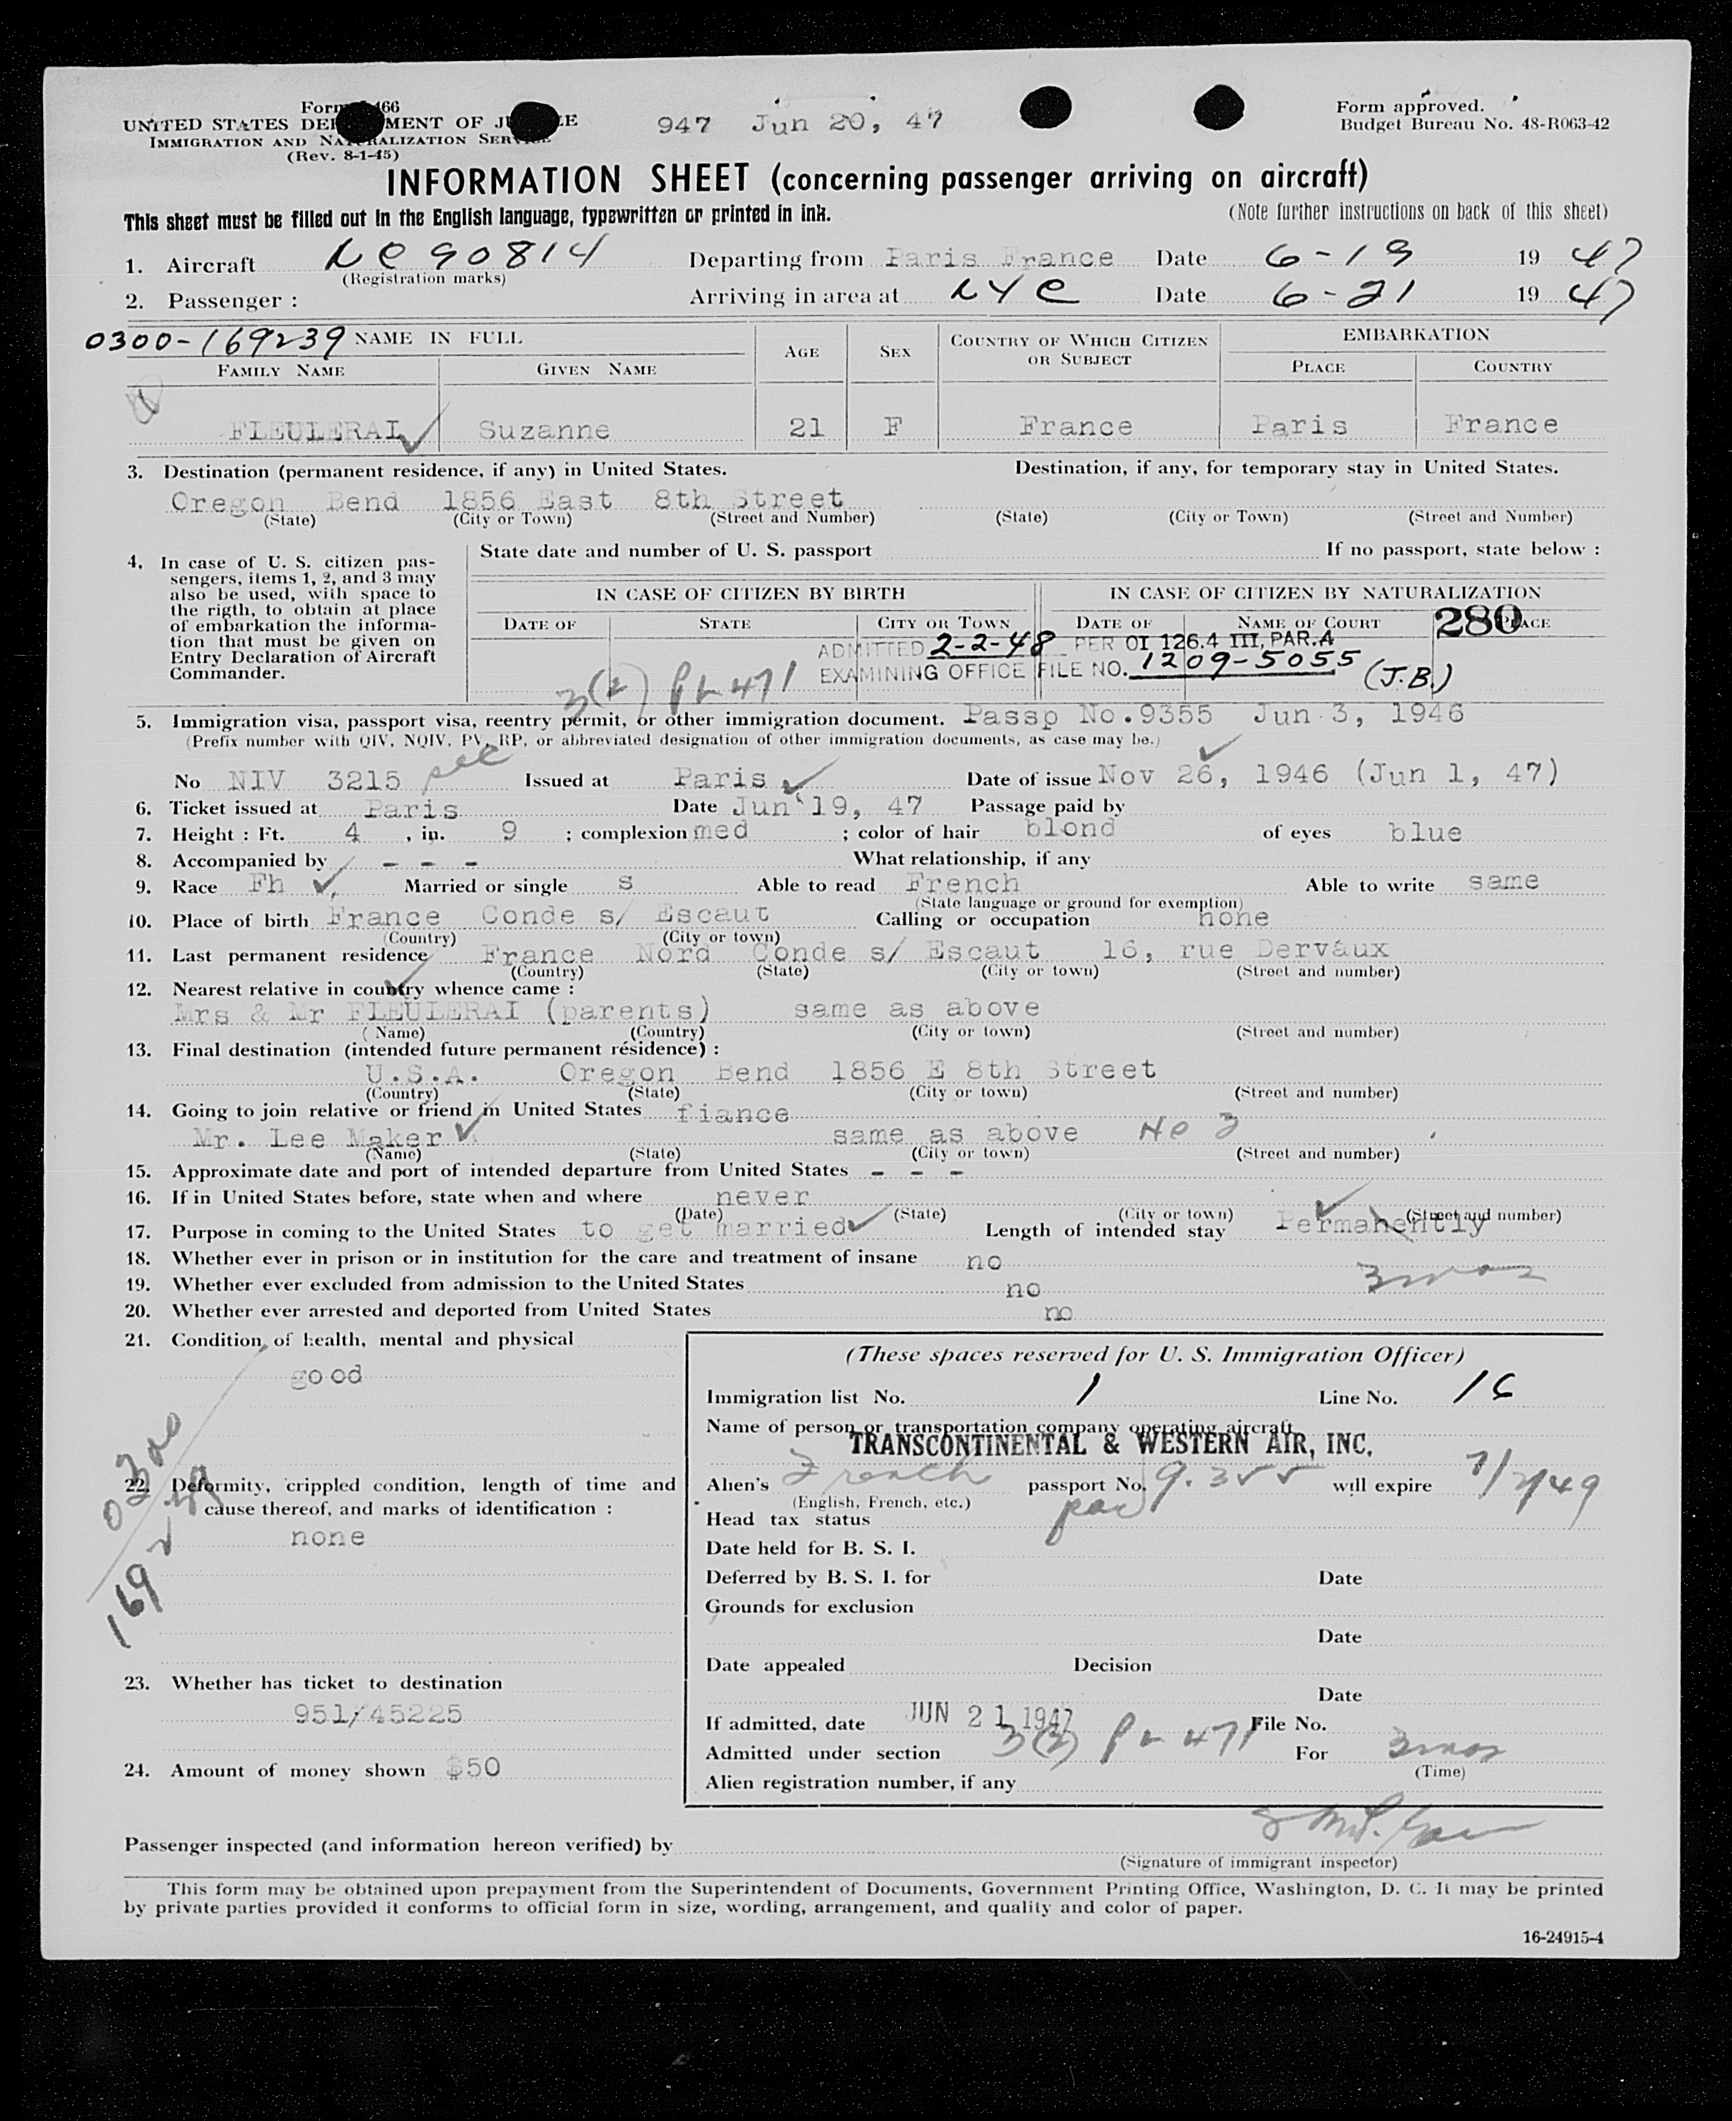 Form 466
UNITED STATES DEPARTMENT OF JUSTICE
IMMIGRATION AND NATURALIZATION SERVICE
(Rev. 8-1-45)
947 Jun 20, 47
Form approved.
Budget Bureau No. 48-R063-42
INFORMATION SHEET (concerning passenger arriving on aircraft)
This sheet must be filled out in the English language, typewritten or printed in ink.
(Note further instructions on back of this sheet)
1. Aircraft NC 90814 Departing from Paris France Date 6-19 19 47
(Registration marks)
2. Passenger : Arriving in area at NYC Date 6-21 19 47
0300-169239 NAME IN FULL AGE SEX COUNTRY OF WHICH CITIZEN OR SUBJECT EMBARKATION
FAMILY NAME GIVEN NAME PLACE COUNTRY
FLEULERAI Suzanne 21 F France Paris France
3. Destination (permanent residence, if any) in United States. Destination, if any, for temporary stay in United States.
Oregon Bend 1856 East 8th Street
(State) (City or Town) (Street and Number) (State) (City or Town) (Street and Number)
4. In case of U. S. citizen pas-
sengers, items 1, 2, and 3 may
also be used, with space to
the rigth, to obtain at place
of embarkation the informa-
tion that must be given on
Entry Declaration of Aircraft
Commander.
State date and number of U. S. passport If no passport, state below :
IN CASE OF CITIZEN BY BIRTH IN CASE OF CITIZEN BY NATURALIZATION
DATE OF STATE CITY OR TOWN DATE OF NAME OF COURT PLACE
280
ADMITTED 2-2-48 PER OI 126.4 III, PAR.A
EXAMINING OFFICE FILE NO. 1209-5055 (J.B.)
3(2) PL 471
5. Immigration visa, passport visa, reentry permit, or other immigration document. Passp No.9355 Jun 3, 1946
(Prefix number with QIV, NQIV, PV, RP, or abbreviated designation of other immigration documents, as case may be.)
No NIV 3215 Issued at Paris Date of issue Nov 26, 1946 (Jun 1, 47)
6. Ticket issued at Paris Date Jun 19, 47 Passage paid by
7. Height : Ft. 4 , in. 9 ; complexion med ; color of hair blond of eyes blue
8. Accompanied by - - - What relationship, if any
9. Race Fh Married or single s Able to read French Able to write same
(State language or ground for exemption)
10. Place of birth France Conde s/ Escaut Calling or occupation none
(Country) (City or town)
11. Last permanent residence France Nord Conde s/ Escaut 16, rue Dervaux
(Country) (State) (City or town) (Street and number)
12. Nearest relative in country whence came :
Mrs & Mr FLEULERAI (parents) same as above
( Name) (Country) (City or town) (Street and number)
13. Final destination (intended future permanent résidence) :
U.S.A. Oregon Bend 1856 E 8th Street
(Country) (State) (City or town) (Street and number)
14. Going to join relative or friend in United States fiance
Mr. Lee Maker same as above
(Name) (State) (City or town) (Street and number)
15. Approximate date and port of intended departure from United States - - -
16. If in United States before, state when and where never
(Date) (State) (City or town) (Street and number)
17. Purpose in coming to the United States to get married Length of intended stay Permanently
3 mos
18. Whether ever in prison or in institution for the care and treatment of insane no
19. Whether ever excluded from admission to the United States no
20. Whether ever arrested and deported from United States no
21. Condition of health, mental and physical
good
22. Deformity, crippled condition, length of time and
cause thereof, and marks of identification :
none
23. Whether has ticket to destination
951/45225
24. Amount of money shown $50
(These spaces reserved for U. S. Immigration Officer)
Immigration list No. 1 Line No. 16
Name of person or transportation company operating aircraft
TRANSCONTINENTAL & WESTERN AIR, INC.
Alien's French passport No. 9.355 will expire
(English, French, etc.)
Head tax status
Date held for B. S. I.
Deferred by B. S. I. for Date
Grounds for exclusion
Date
Date appealed Decision
Date
If admitted, date JUN 21 1947 File No.
Admitted under section 3(2) PL 471 For 3 mos
(Time)
Alien registration number, if any
Passenger inspected (and information hereon verified) by
(Signature of immigrant inspector)
This form may be obtained upon prepayment from the Superintendent of Documents, Government Printing Office, Washington, D. C. It may be printed
by private parties provided it conforms to official form in size, wording, arrangement, and quality and color of paper.
16-24915-4